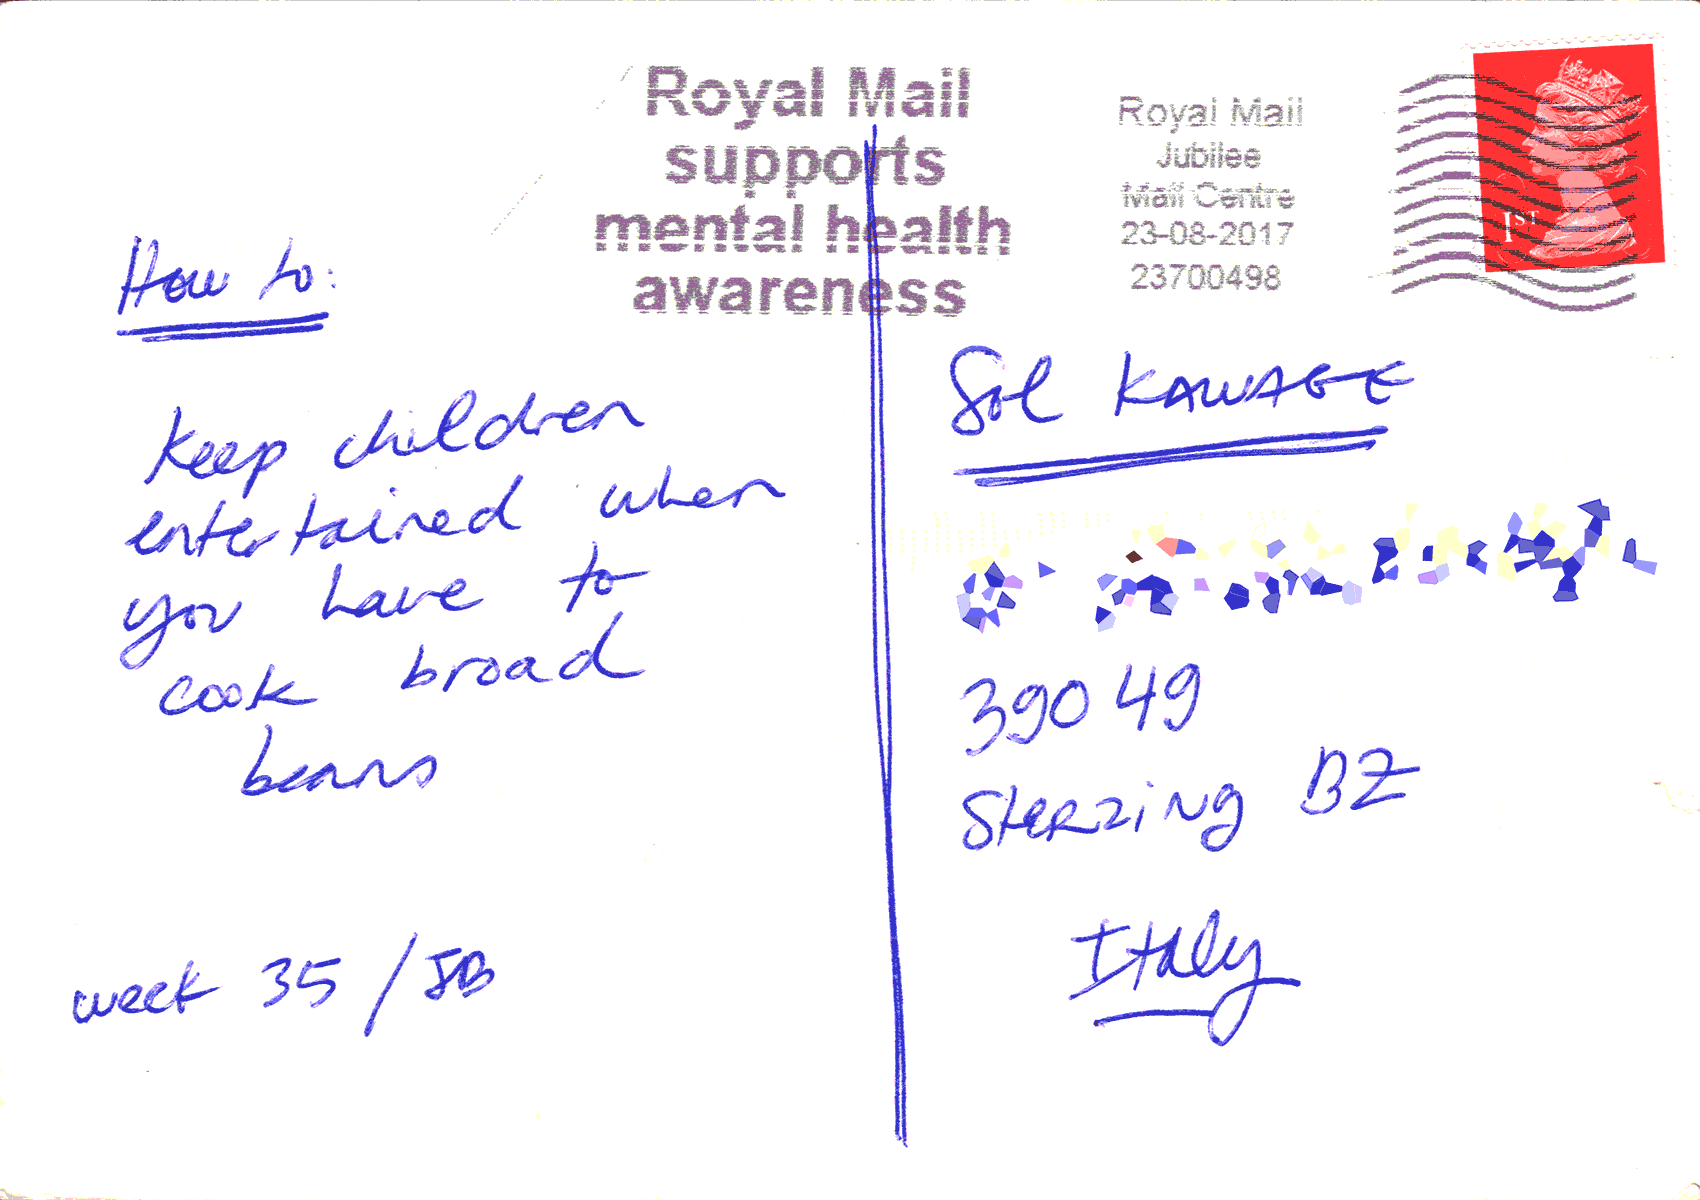 Royal Mail
supports
mental health
awareness
Royal Mail
Jubilee
Mail Centre
23-08-2017
23700498
1ST
How to:
Keep children
entertained when
you have to
cook broad
beans
week 35 / JB
Sol KAWAGE
39049
Sterzing BZ
Italy